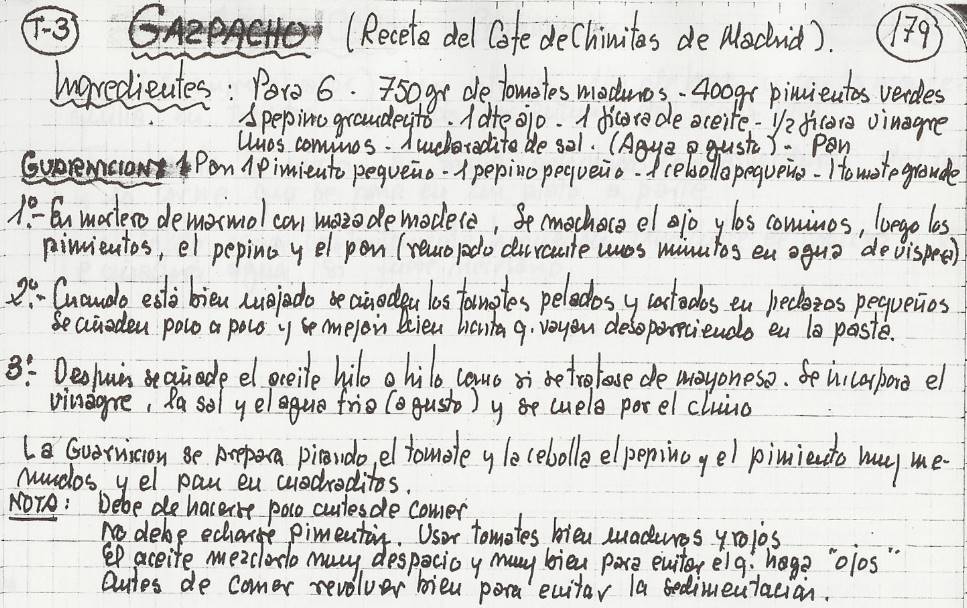 T-3 GAZPACHO (Receta del Cafe de Chinitas de Madrid). 179
Ingredientes: Para 6 · 750 gr de tomates maduros - 400 gr pimientos verdes
1 pepino grandecito - 1 dte ajo - 1 jícara de aceite - 1/2 jícara vinagre
Unos cominos - 1 cucharadita de sal. (Agua a gusto) - Pan
GUARNICION: Pan 1 Pimiento pequeño - 1 pepino pequeño - 1 cebolla pequeña - 1 tomate grande
1º- En mortero de marmol con maza de madera, se machaca el ajo y los cominos, luego los
pimientos, el pepino y el pan (remojado durante unos minutos en agua de vispera)
2º- Cuando está bien majado se añaden los tomates pelados y cortados en pedazos pequeños
Se añaden poco a poco y se mejan bien hasta q. vayan desapareciendo en la pasta.
3º- Después se añade el aceite hilo a hilo como si se tratase de mayonesa. Se incorpora el
vinagre, la sal y el agua fria (a gusto) y se cuela por el chino
La Guarnicion se prepara picando el tomate y la cebolla el pepino y el pimiento muy me-
nudos y el pan en cuadraditos.
NOTA: Debe de hacerse poco antes de comer
No debe echarse Pimentón. Usar tomates bien maduros y rojos
El aceite mezclarlo muy despacio y muy bien para evitar el q. haga "ojos"
Antes de comer revolver bien para evitar la sedimentación.